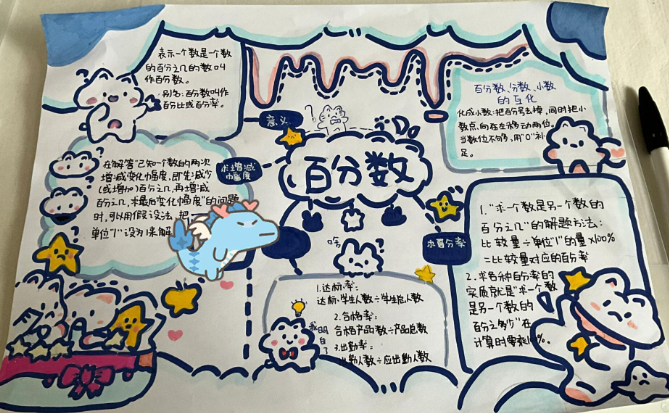 表示一个数是一个数
的百分之几的数叫
作百分数。
别名:百分数叫作
百分比或百分率。
意义
百分数、分数、小数
的互化
化成小数:把百分号去掉,同时把小
数点向左移动两位,
当数位不够时,用"0"补
足。
百分数
在解答"已知一个数的两次
增减变化幅度,即先减少
(或增加)百分之几,再增减
百分之几,求最后变化幅度"的问题
时,可以用假设法,把
单位"1"设为 来解
求增减
幅度
求百分率
1."求一个数是另一个数的
百分之几"的解题方法:
比较量÷单位"1"的量×100%
=比较量对应的百分率
2.求各种百分率的
实质就是"求一个数
是另一个数的
百分之几"在
计算时需乘100%。
1.达标率:
达标学生人数÷学生总人数
2.合格率:
合格产品数÷产品总数
3.出勤率:
出勤人数÷应出勤人数
我明白了